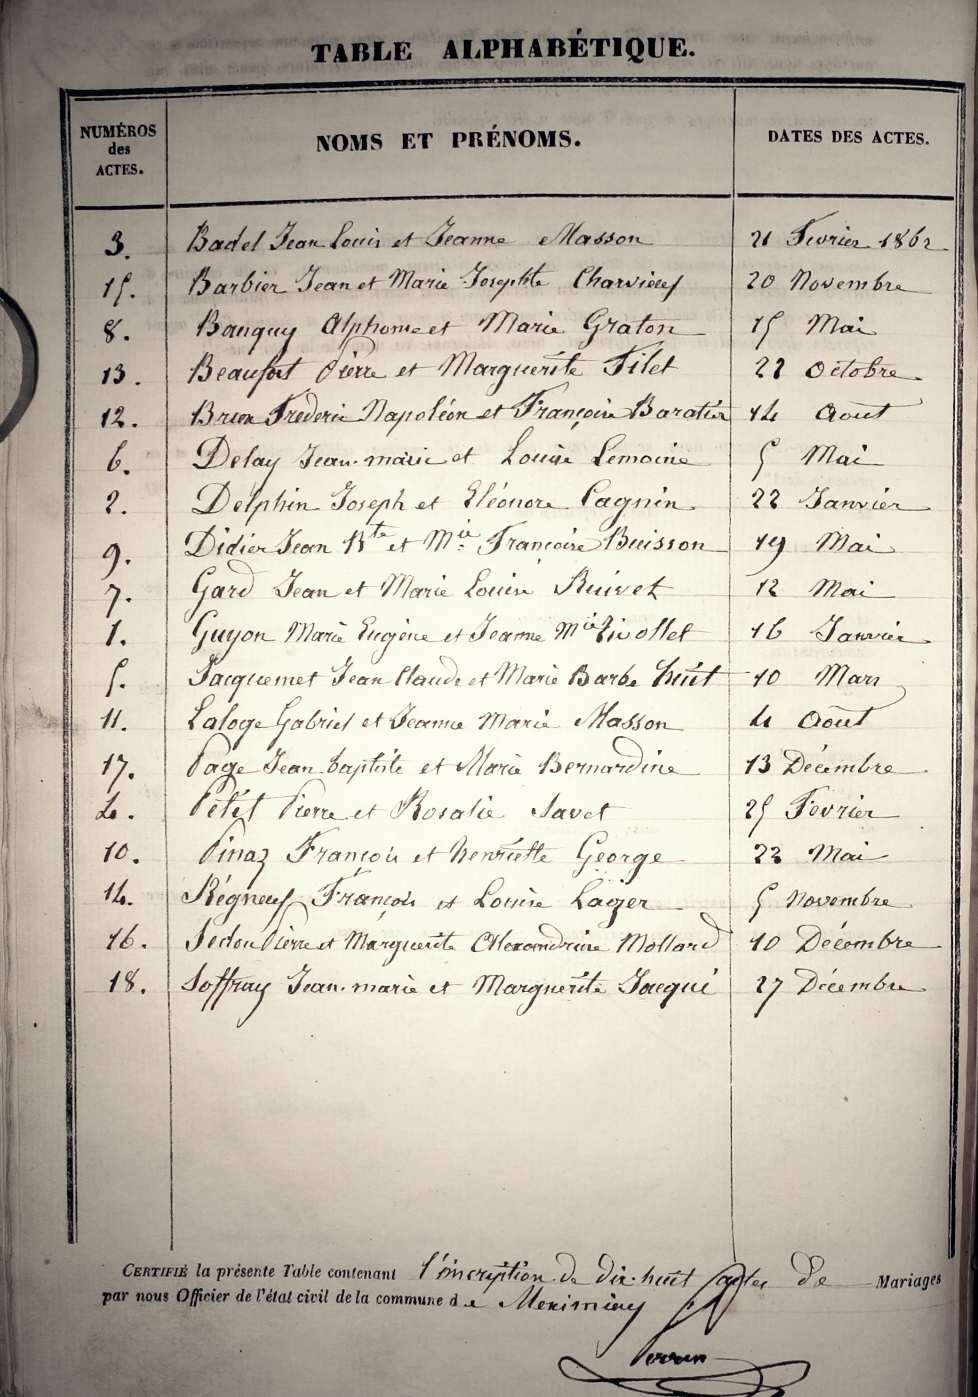 TABLE ALPHABÉTIQUE.
NUMÉROS des ACTES. NOMS ET PRÉNOMS. DATES DES ACTES.
3. Badel Jean Louis et Jeanne Masson 21 Fevrier 1862
15. Barbier Jean et Marie Josephte Charvieux 20 Novembre
8. Bouquy Alphonse et Marie Graton 15 Mai
13. Beaufort Pierre et Marguerite Filet 22 Octobre
12. Brun Fréderic Napoléon et Françoise Baratier 14 Août
6. Delay Jean-marie et Louise Lemoine 5 Mai
2. Delphin Joseph et Eléonore Cagnin 22 Janvier
9. Didier Jean Bte et Mie Francoise Buisson 19 Mai
7. Gard Jean et Marie Louise Ruivet 12 Mai
1. Guyon Marie Eugène et Jeanne Mie Tivollet 16 Janvier
5. Jacquemet Jean Claude et Marie Barbe huit 10 Mars
11. Laloge Gabriel et Jeanne Marie Masson 4 Août
17. Page Jean baptiste et Marie Bernardine 13 Décembre
4. Petit Pierre et Rosalie Savet 25 Fevrier
10. Pinaz François et henriette George 22 Mai
14. Régneux François et Louise Lager 5 Novembre
16. Sedou Pierre et Marguerite Alexandrine Mollard 10 Décembre
18. Soffray Jean-marie et Marguerite Jacqui 27 Décembre
CERTIFIÉ la présente Table contenant l'inscription de dix-huit actes de Mariages
par nous Officier de l'état civil de la commune de Meximieux
Perrin